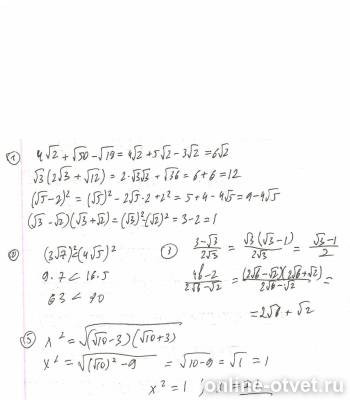 ① 4√2 + √50 - √18 = 4√2 + 5√2 - 3√2 = 6√2
√3 (2√3 + √12) = 2·√3√3 + √36 = 6 + 6 = 12
(√5 - 2)² = (√5)² - 2√5·2 + 2² = 5 + 4 - 4√5 = 9 - 4√5
(√3 - √2)(√3 + √2) = (√3)² - (√2)² = 3 - 2 = 1
② (3√7)² = (4√5)²
9·7 < 16·5
63 < 80
③ (3-√3)/(2√3) = √3(√3-1)/(2√3) = (√3-1)/2
= (2√6-√2)(2√6+√2)/(2√6-√2) =
= 2√6 + √2
⑤ x² = √((√10-3)(√10+3))
x² = √((√10)² - 9) = √(10-9) = √1 = 1
x² = 1
online-otvet.ru